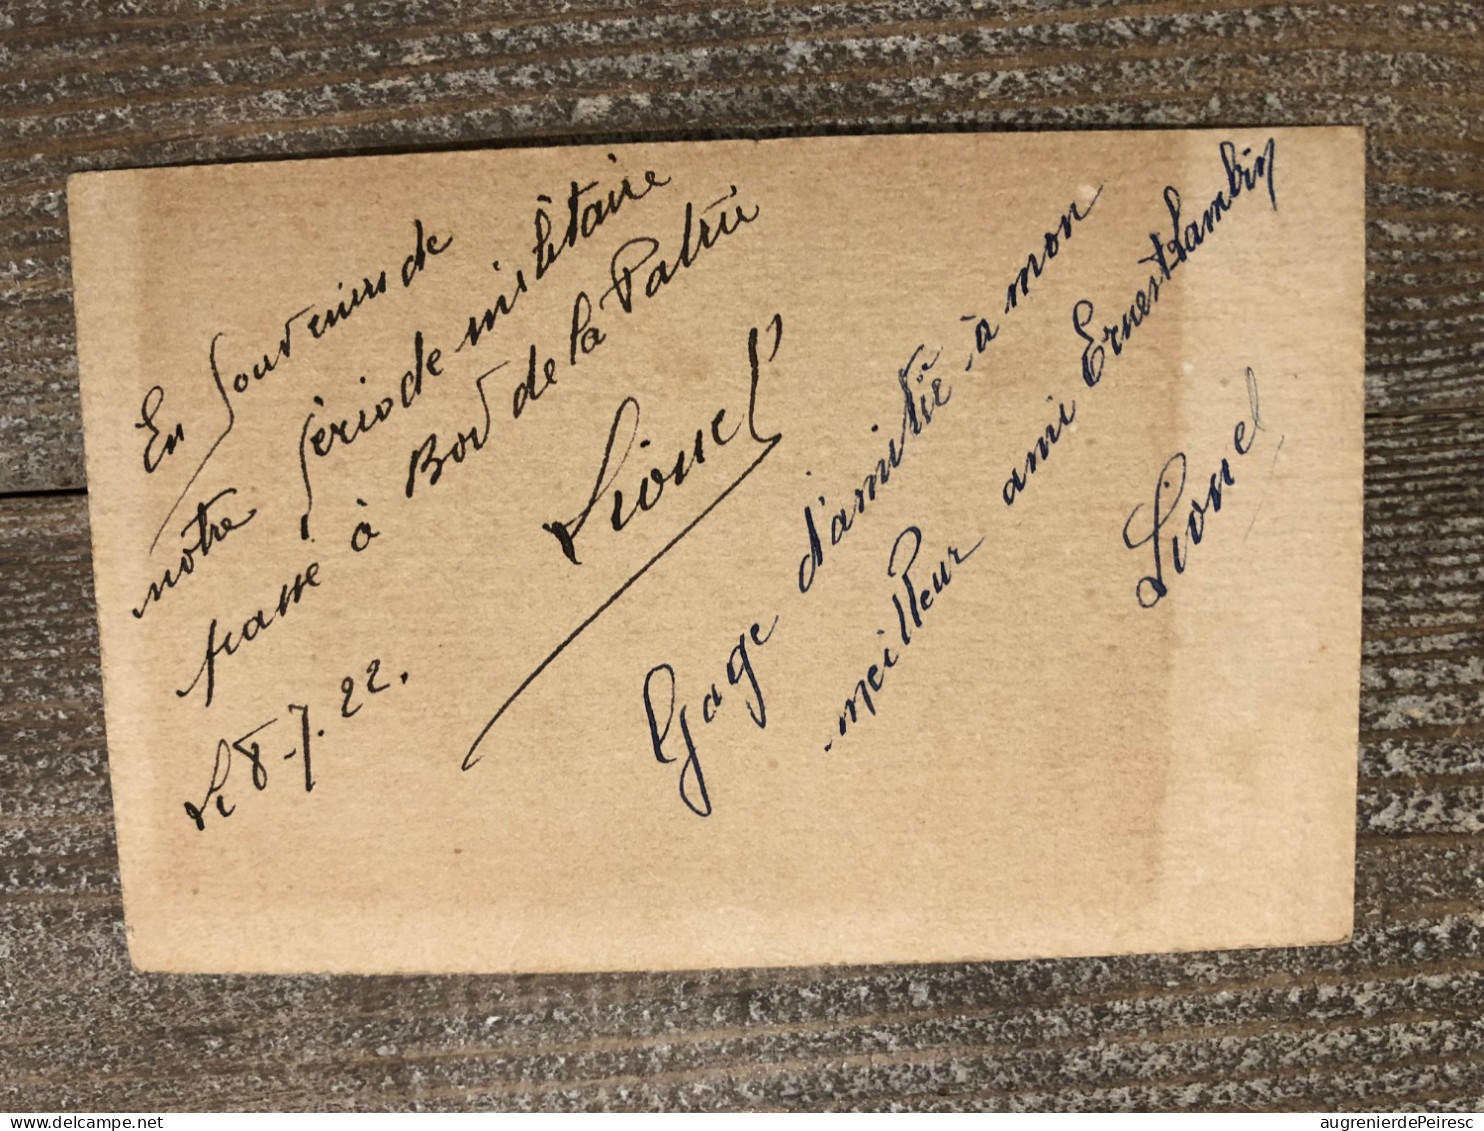 En Souvenirs de
notre période militaire
passé à Bord de la Patrie
Lionel
Le 8-7.22.
Gage d'amitiè à mon
meilleur ami Ernest Lambin
Lionel
augrenierdePeiresc